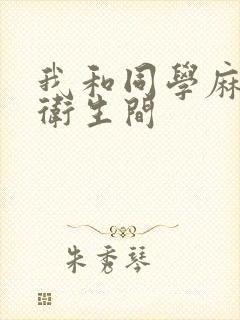 我和同學麻
衛生間
朱秀琴